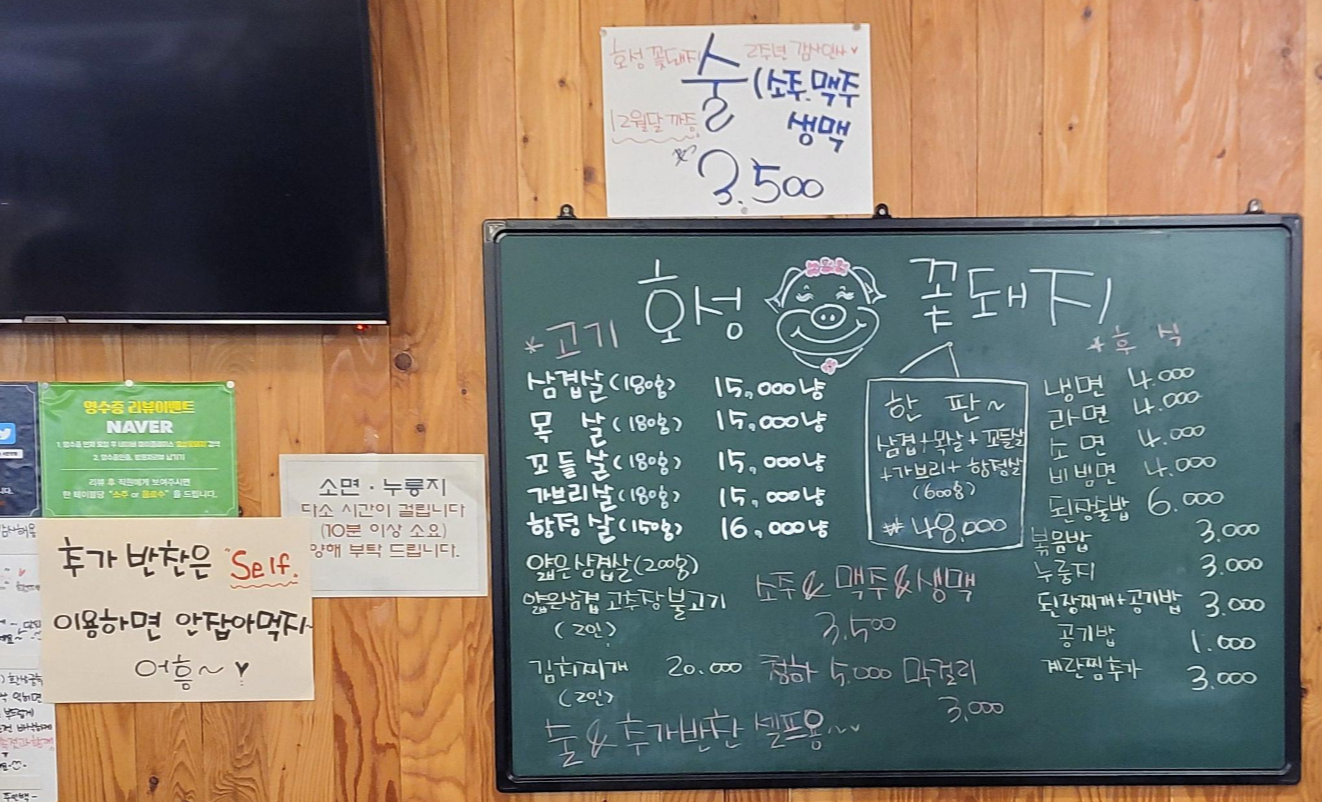 화성 꽃돼지
2주년 감사인사♥
술 (소주.맥주
생맥
12월달 까증
3.500
화성 꽃돼지
*고기
삼겹살(180g) 15,000냥
목 살(180g) 15,000냥
꼬들살(180g) 15,000냥
가브리살(180g) 15,000냥
항정살(150g) 16,000냥
얇은삼겹살(200g)
얇은삼겹 고추장불고기
(2인)
김치찌개 20.000
(2인)
한 판~
삼겹+목살+꼬들살
+가브리+항정살
(600g)
₩48,000
소주 & 맥주 & 생맥
3,500
청하 5,000 막걸리
3,000
술 & 추가반찬 셀프용~
*후 식
냉면 4.000
라면 4.000
소면 4.000
비빔면 4.000
된장술밥 6.000
볶음밥 3.000
누룽지 3.000
된장찌개+공기밥 3,000
공기밥 1.000
계란찜추가 3.000
영수증 리뷰이벤트
NAVER
2. 영수증인증, 방문자리뷰 남기기
리뷰 후 직원에게 보여주시면
한 테이블당 "소주 or 음료수" 를 드립니다.
소면·누룽지
다소 시간이 걸립니다
(10분 이상 소요)
양해 부탁 드립니다.
추가 반찬은 "Self.
이용하면 안잡아먹지~
어흥~♥